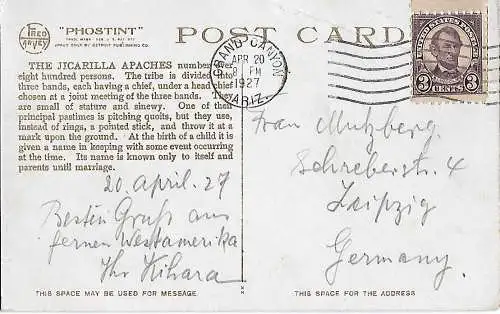 FRED HARVEY
"PHOSTINT"
TRADE MARK REG. U.S. PAT. OFF.
MADE ONLY BY DETROIT PUBLISHING CO.
POST CARD
THE JICARILLA APACHES number over
eight hundred persons. The tribe is divided into
three bands, each having a chief, under a head chief
chosen at a joint meeting of the three bands. They
are small of stature and sinewy. One of their
principal pastimes is pitching quoits, but they use,
instead of rings, a pointed stick, and throw it at a
mark upon the ground. At the birth of a child it is
given a name in keeping with some event occurring
at the time. Its name is known only to itself and
parents until marriage.
20. April. 27
Besten Gruß aus
fernen Westamerika
Ihr Kihara
THIS SPACE MAY BE USED FOR MESSAGE.
GRAND CANYON
APR 20
8 PM
1927
ARIZ.
UNITED STATES POSTAGE
LINCOLN
3 CENTS 3
Frau Mutzberg
Schreberstr. 4
Leipzig
Germany.
THIS SPACE IS FOR THE ADDRESS